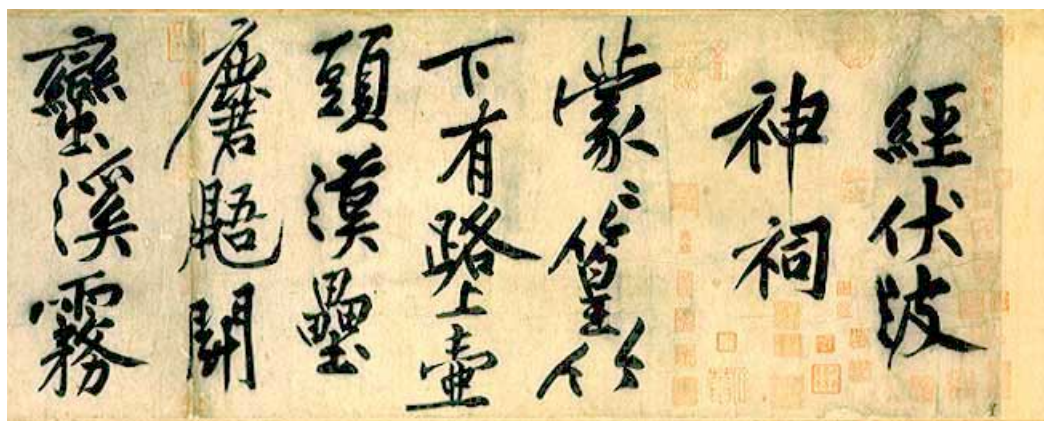 經伏波
神祠
蒙〻篁竹
下有路上壺
頭漢壘
麏鼯鬬
蠻溪霧